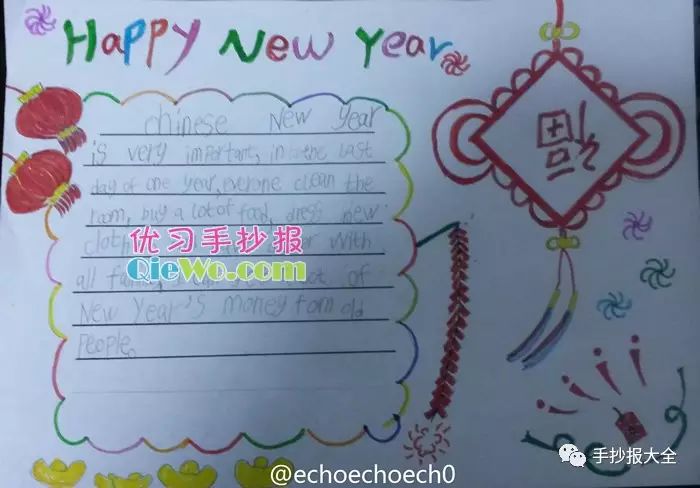 Happy New Year
福
chinese New Year
is very important, in the last
day of one year, everone clean the
room, buy a lot of food, dress new
clot
优习手抄报
with
QieWo.com
all fam of
New Year's money fom old
people.
@echoechoech0
手抄报大全